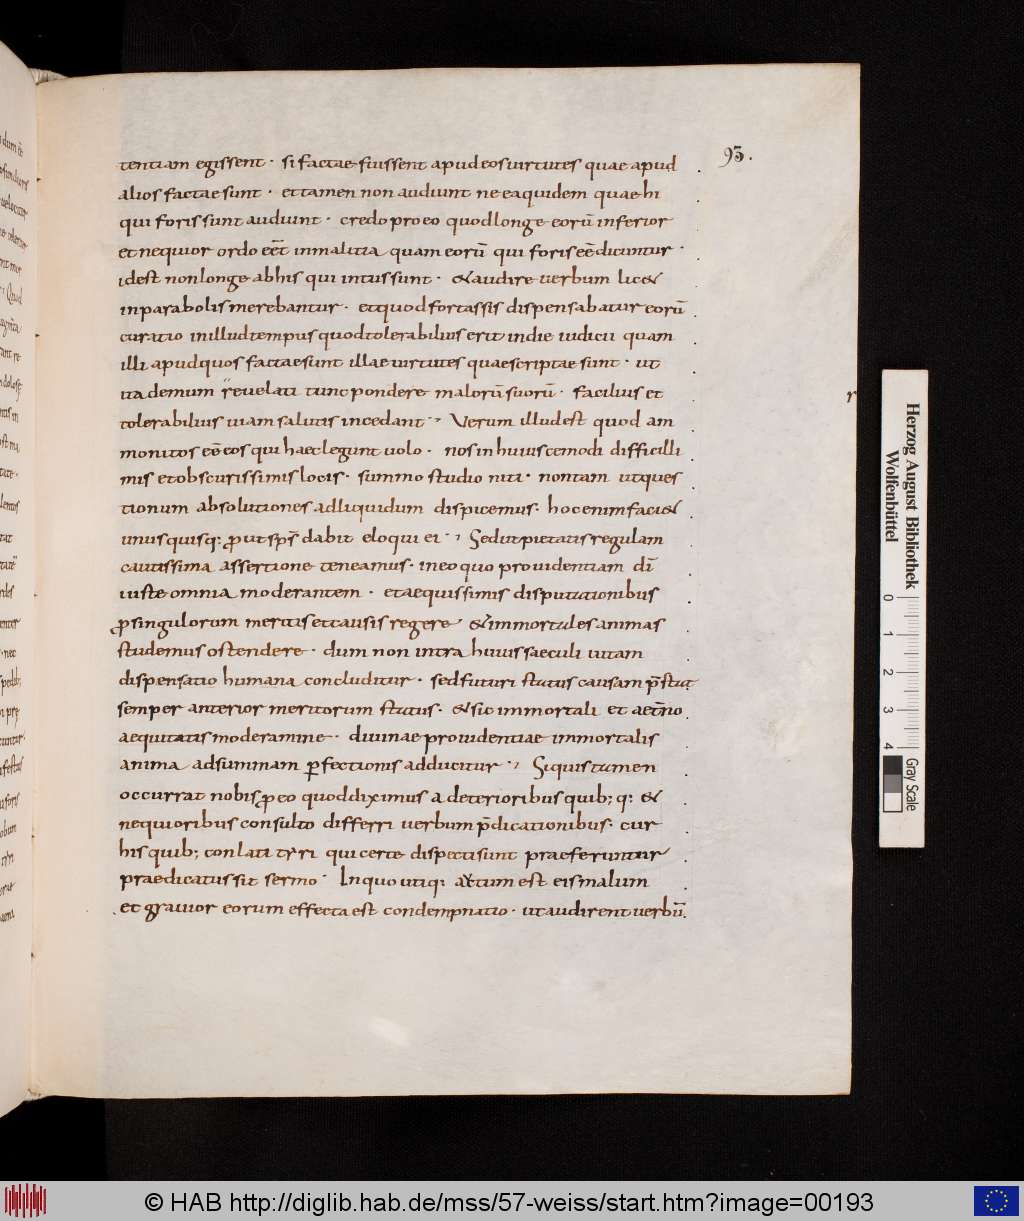 93.
tentiam egissent · si factae fuissent apud eos uirtutes quae apud
alios factae sunt · et tamen non audiunt ne ea quidem quae hi
qui foris sunt audiunt · credo pro eo quod longe eorū inferior
et nequior ordo eēt in malitia quam eorū qui foris eē dicuntur ·
id est non longe ab his qui intus sunt · & audire uerbum lic&
in parabolis merebantur · et quod fortassis dispensabatur eorū
curatio in illud tempus quod tolerabilius erit in die iudicii quam
illi apud quos factae sunt illae uirtutes quae scriptae sunt · ut
ita demum reuelati tunc pondere malorū suorū · facilius et
tolerabilius uiam salutis incedant · Verum illud est quod am
monitos eē eos qui haec legunt uolo · nos in huiuscemodi difficilli
mis et obscurissimis locis · summo studio niti · non tam ut ques
tionum absolutiones ad liquidum dispicemus · hoc enim faci&
unus quisq: ꝓut sps̄ dabit eloqui ei · Sed ut pietatis regulam
cautissima assertione teneamus · in eo quo prouidentiam dī
iuste omnia moderantem · et aequissimis disputationibus
ꝓ singulorum meritis et causis regere & immortales animas
studemus ostendere · dum non intra huius saeculi uitam
dispensatio humana concluditur · sed futuri status causam p̄stat
semper anterior meritorum status · & sic immortali et aet̄no
aequitatis moderamine · diuinae prouidentiae immortalis
anima ad summam ꝑfectionis adducitur · Siquis tamen
occurrat nobis ꝓ eo quod diximus a deterioribus quib; q: &
nequioribus consulto differri uerbum p̄dicationibus · cur
his quib; conlati tyri qui certe dispecti sunt praeferuntur
praedicatus sit sermo · In quo utiq: actum est eis malum
et grauior eorum effecta est condempnatio · ut audirent uerbū
r
Herzog August Bibliothek
Wolfenbüttel
0 1 2 3 4
Gray Scale
© HAB http://diglib.hab.de/mss/57-weiss/start.htm?image=00193